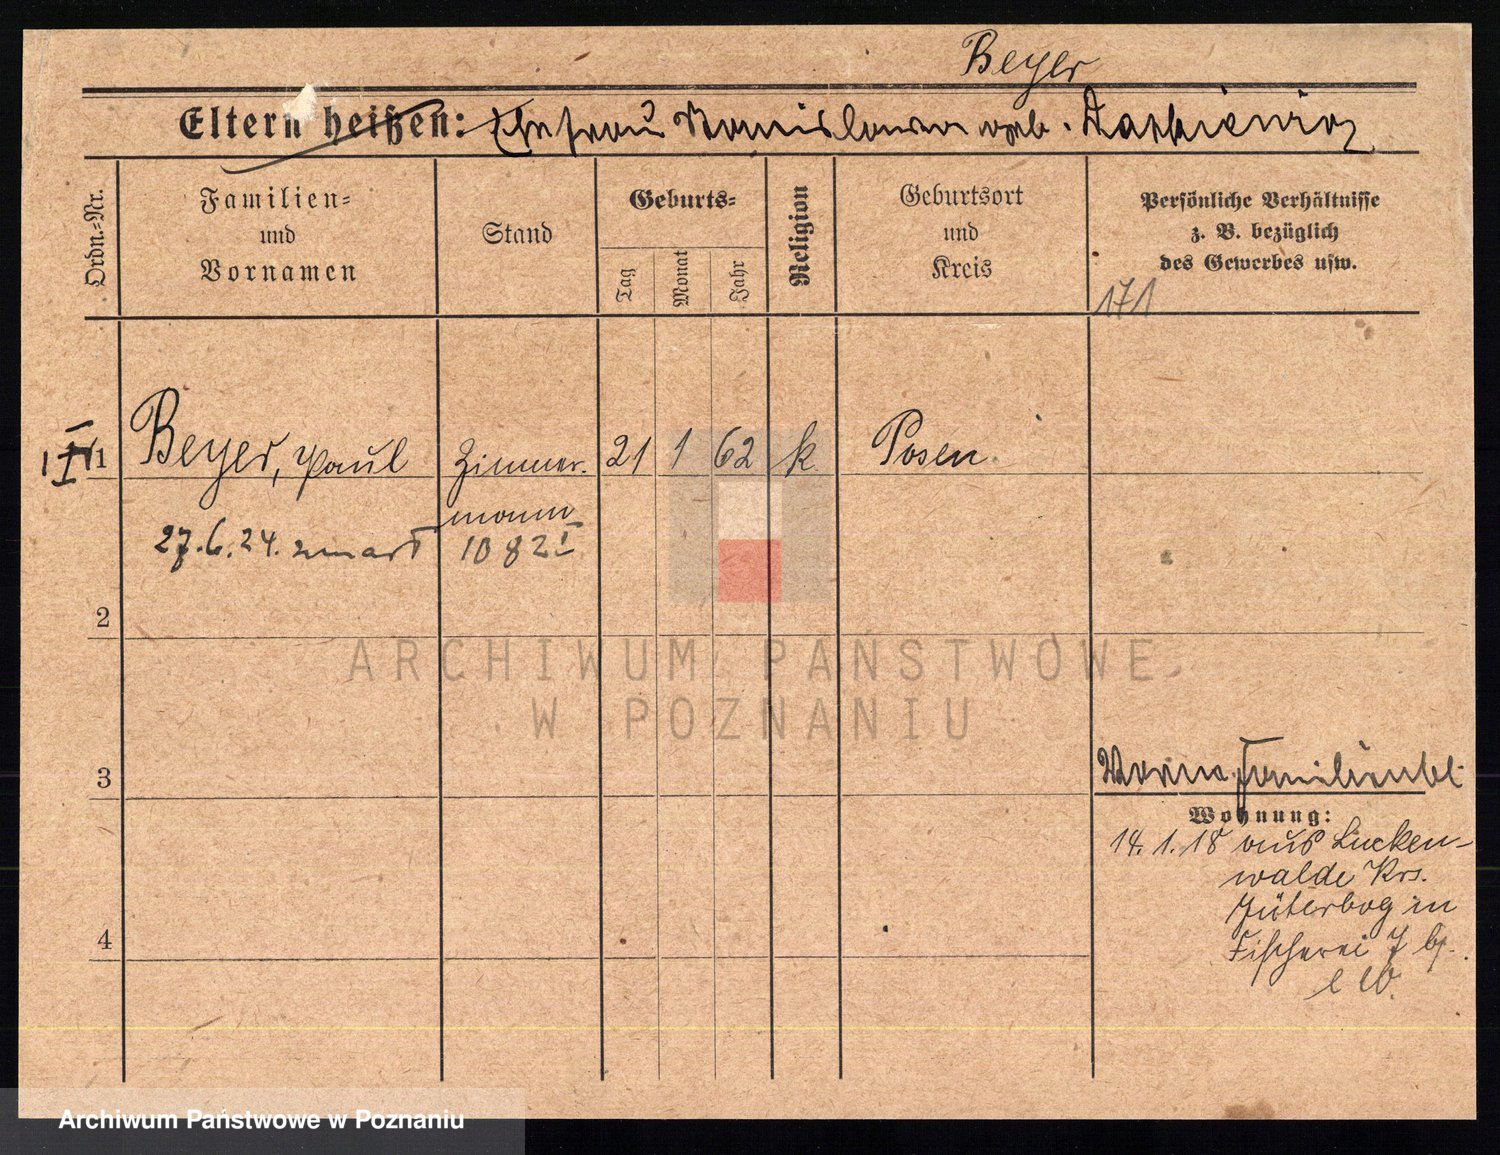 Beyer
Eltern heißen: Ehefrau Stanislawa geb.
Ordn.-Nr.
Familien- und Vornamen
Stand
Geburts-
Tag
Monat
Jahr
Religion
Geburtsort und Kreis
Persönliche Verhältnisse
z. B. bezüglich
des Gewerbes usw.
171
1 Beyer, Paul Zimmer- 21 1 62 k Posen
mann
27.6.24. zmarł 1082 I
2
ARCHIWUM PAŃSTWOWE
W POZNANIU
3
Familienbl.
Wohnung:
14.1.18 aus Lucken-
walde Krs.
Jüterbog in
Fischerei 7 b.
4
Archiwum Państwowe w Poznaniu